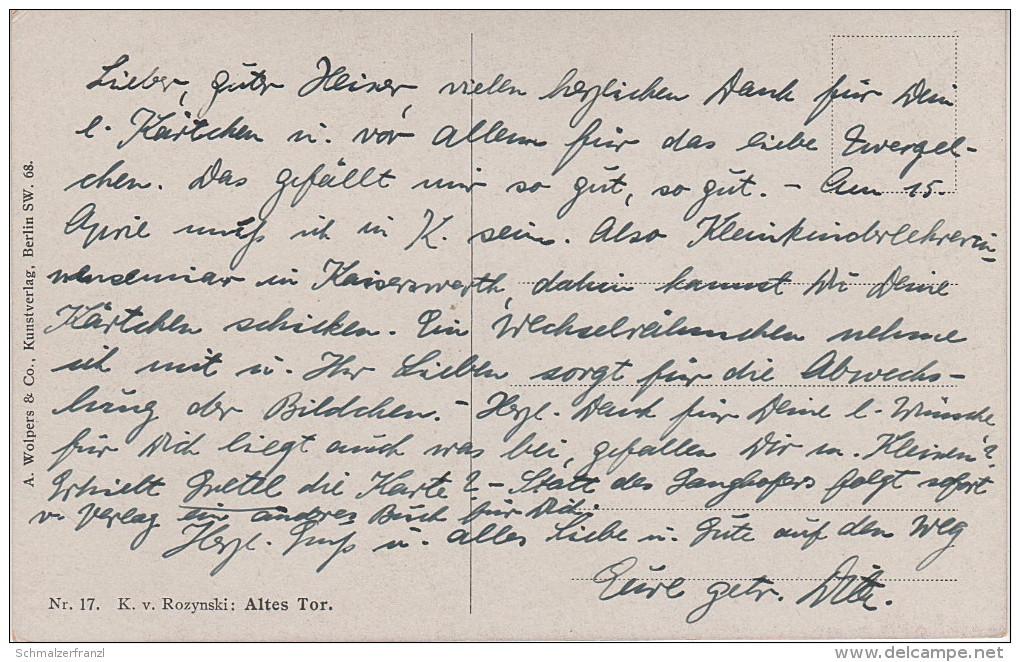 Lieber, guter Heiner, vielen herzlichen Dank für Dein
l. Kärtchen u. vor allem für das liebe Zwergel-
chen. Das gefällt mir so gut, so gut. – Am 15.
April muß ich in K. sein. Also Kleinkinderlehrerin-
nenseminar in Kaiserswerth, dahin kannst Du Deine
Kärtchen schicken. Ein Wechselrähmchen nehme
ich mit u. Ihr Lieben sorgt für die Abwechs-
lung der Bildchen. – Herzl. Dank für Deine l. Wünsche
für Dich liegt auch was bei, gefallen Dir m. Kleisen?
Erhielt Gretel die Karte? – Statt des Ganghofers folgt sofort
v. Verlag ein anderes Buch für Dich.
Herzl. Gruß u. alles Liebe u. Gute auf den Weg
Eure getr.
A. Wolpers & Co., Kunstverlag, Berlin SW. 68.
Nr. 17. K. v. Rozynski: Altes Tor.
Schmalzerfranzl
www.delcampe.net